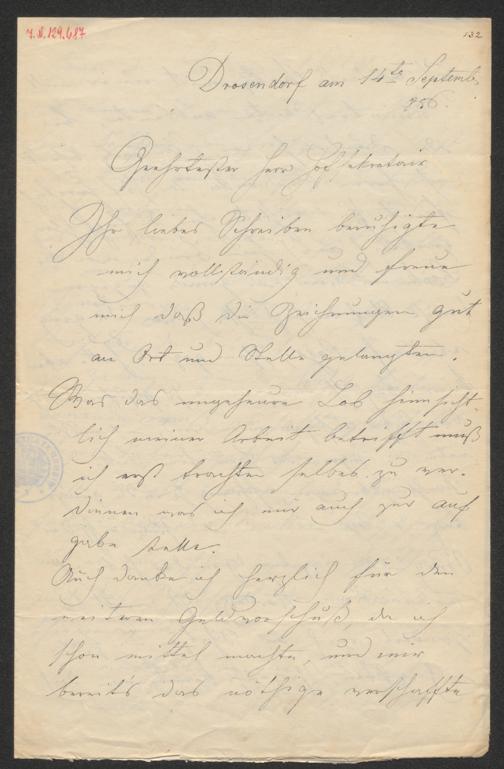 J.N. 129.687
132
Drosendorf am 14te Septemb.
Geehrtester Herr Hofsekretair
Ihr liebes Schreiben beruhigte
mich vollständig und freue
mich daß die Zeichnungen gut
an Ort und Stelle gelangten.
Was das ungeheure Lob hinsicht-
lich meiner Arbeit betrifft muß
ich erst trachten selbes zu ver-
dienen was ich mir auch zur Auf
gabe stelle.
Auch danke ich herzlich für den
weiteren Geldvorschuß, da ich
schon mittel machte, und mir
bereits das nöthige verschaffte